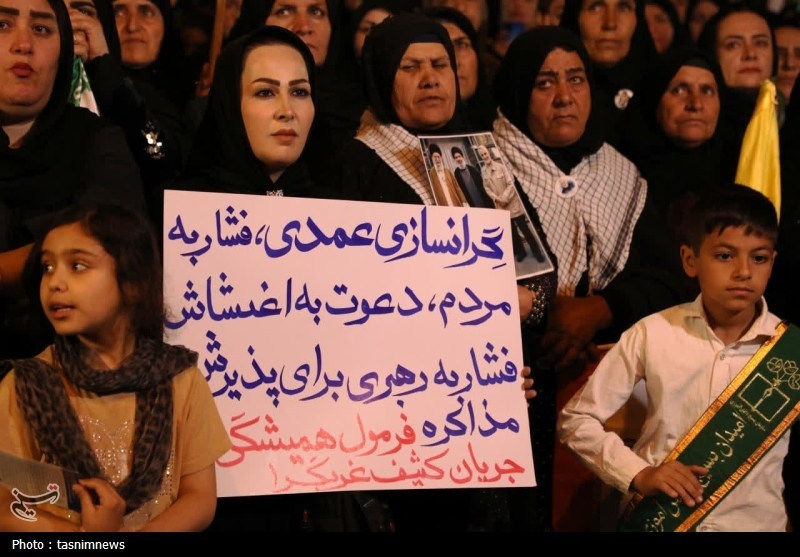 گرانسازی عمدی، فشار به
مردم، دعوت به اغتشاش
فشار به رهبری برای پذیرش
مذاکره فرمول همیشگی
جریان کثیف غربگرا
میدان
Photo : tasnimnews